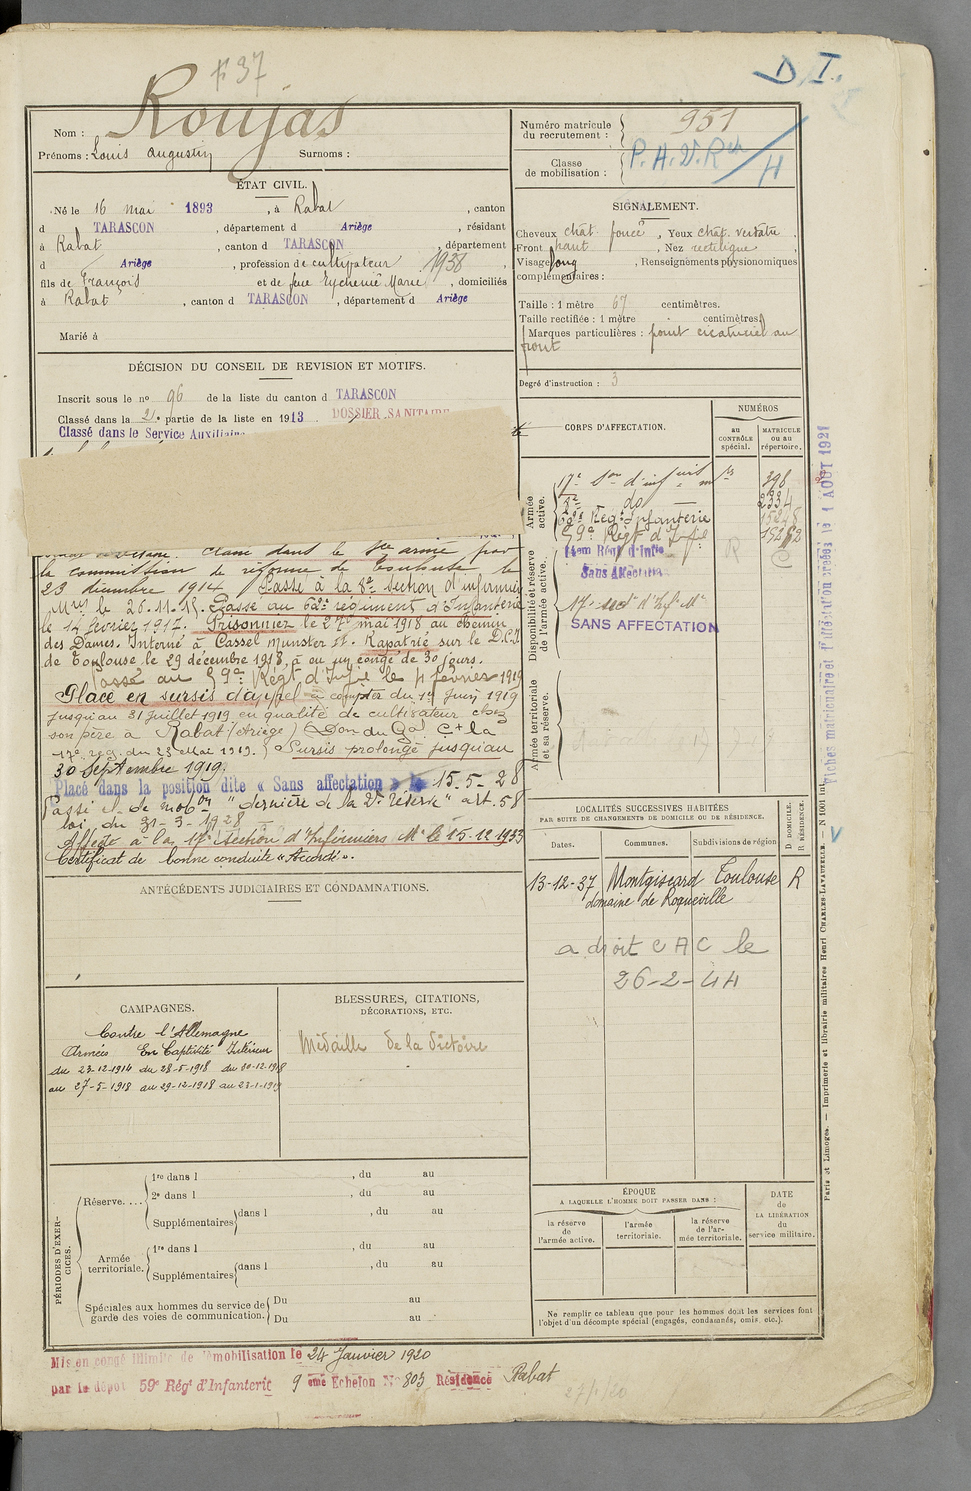 F 37
D I.
Nom : Roujas
Prénoms : Louis Augustin Surnoms :
Numéro matricule du recrutement : 951
Classe de mobilisation : P. H. D. R H
ÉTAT CIVIL.
Né le 16 mai 1893, à Rabat, canton
d TARASCON, département d Ariège, résidant
à Rabat, canton d TARASCON, département
d Ariège, profession de cultivateur 1938
fils de François et de feue Eychenié Marie, domiciliés
à Rabat, canton d TARASCON, département d Ariège
Marié à
SIGNALEMENT.
Cheveux chât. foncé, Yeux chât. verdâtre,
Front haut, Nez rectiligne,
Visage long, Renseignements physionomiques
complémentaires :
Taille : 1 mètre 67 centimètres.
Taille rectifiée : 1 mètre centimètres.
Marques particulières : point cicatriciel au
front
Degré d'instruction : 3
DÉCISION DU CONSEIL DE REVISION ET MOTIFS.
Inscrit sous le nº 96 de la liste du canton d TARASCON
Classé dans la 2e partie de la liste en 1913 DOSSIER SANITAIRE
Classé dans le Service Auxiliaire
Classé dans le Sce armé par
la commission de réforme de Toulouse le
23 décembre 1914. Passé à la 8e section d'infirmiers
Mres le 26.11.15. Passé au 62e régiment d'Infanterie
le 14 février 1917. Prisonnier le 27 mai 1918 au chemin
des Dames. Interné à Cassel Munster st. Rapatrié sur le D.C.I
de Toulouse le 29 décembre 1918, a eu un congé de 30 jours.
Passé au 59e Régt d'Infie le 4 février 1919
Placé en sursis d'appel à compter du 1er Juin 1919
jusqu'au 31 juillet 1919 en qualité de cultivateur chez
son père à Rabat (Ariège) Don du Gal Ct la
17e reg. du 23 Mai 1919. Sursis prolongé jusqu'au
30 Septembre 1919.
Placé dans la position dite « Sans affectation » le 15-5-28
Passé cl. de mobon "dernière de la 2e Réserve" art. 58
loi du 31-3-1928
Affecté à la 17e Section d'Infirmiers Mre le 15.12.1933
Certificat de bonne conduite « Accordé ».
CORPS D'AFFECTATION.
NUMÉROS
au CONTRÔLE spécial.
MATRICULE ou au répertoire.
Armée active.
17e Son d'inf 398
8e do 2334
62e Régt Infanterie 15248
59e Régt d'Infie 15262
Disponibilité et réserve de l'armée active.
Régt d'Infie R C
Sans affectation
17e sect. d'Infirs Mre
SANS AFFECTATION
Armée territoriale et sa réserve.
Fiches matriculaire et d'affectation créées le 1 AOUT 1921
LOCALITÉS SUCCESSIVES HABITÉES
PAR SUITE DE CHANGEMENTS DE DOMICILE OU DE RÉSIDENCE.
Dates.
Communes.
Subdivisions de région
D. DOMICILE. R. RÉSIDENCE.
13-12-37 Montgiscard Toulouse R
domaine de Roqueville
a droit C A C le
26-2-44
ANTÉCÉDENTS JUDICIAIRES ET CONDAMNATIONS.
CAMPAGNES.
Contre l'Allemagne
Armées En Captivité Intérieur
du 23-12-1914 du 28-5-1918 du 30-12-1918
au 27-5-1918 au 29-12-1918 au 23-1-1919
BLESSURES, CITATIONS,
DÉCORATIONS, ETC.
Médaille de la Victoire
PÉRIODES D'EXERCICES.
Réserve....
1re dans l , du au
2e dans l , du au
Supplémentaires dans l , du au
Armée territoriale.
1re dans l , du au
Supplémentaires dans l , du au
Spéciales aux hommes du service de garde des voies de communication.
Du au
Du au
ÉPOQUE
A LAQUELLE L'HOMME DOIT PASSER DANS :
la réserve de l'armée active.
l'armée territoriale.
la réserve de l'armée territoriale.
DATE de LA LIBÉRATION du service militaire.
Ne remplir ce tableau que pour les hommes dont les services font
l'objet d'un décompte spécial (engagés, condamnés, omis, etc.).
Paris et Limoges. — Imprimerie et librairie militaires Henri CHARLES-LAVAUZELLE. — N 1001
Mis en congé illimité de démobilisation le 24 Janvier 1920
par le dépôt 59e Régt d'Infanterie 9 eme Echelon N° 803 Résidence Rabat
27/1/20